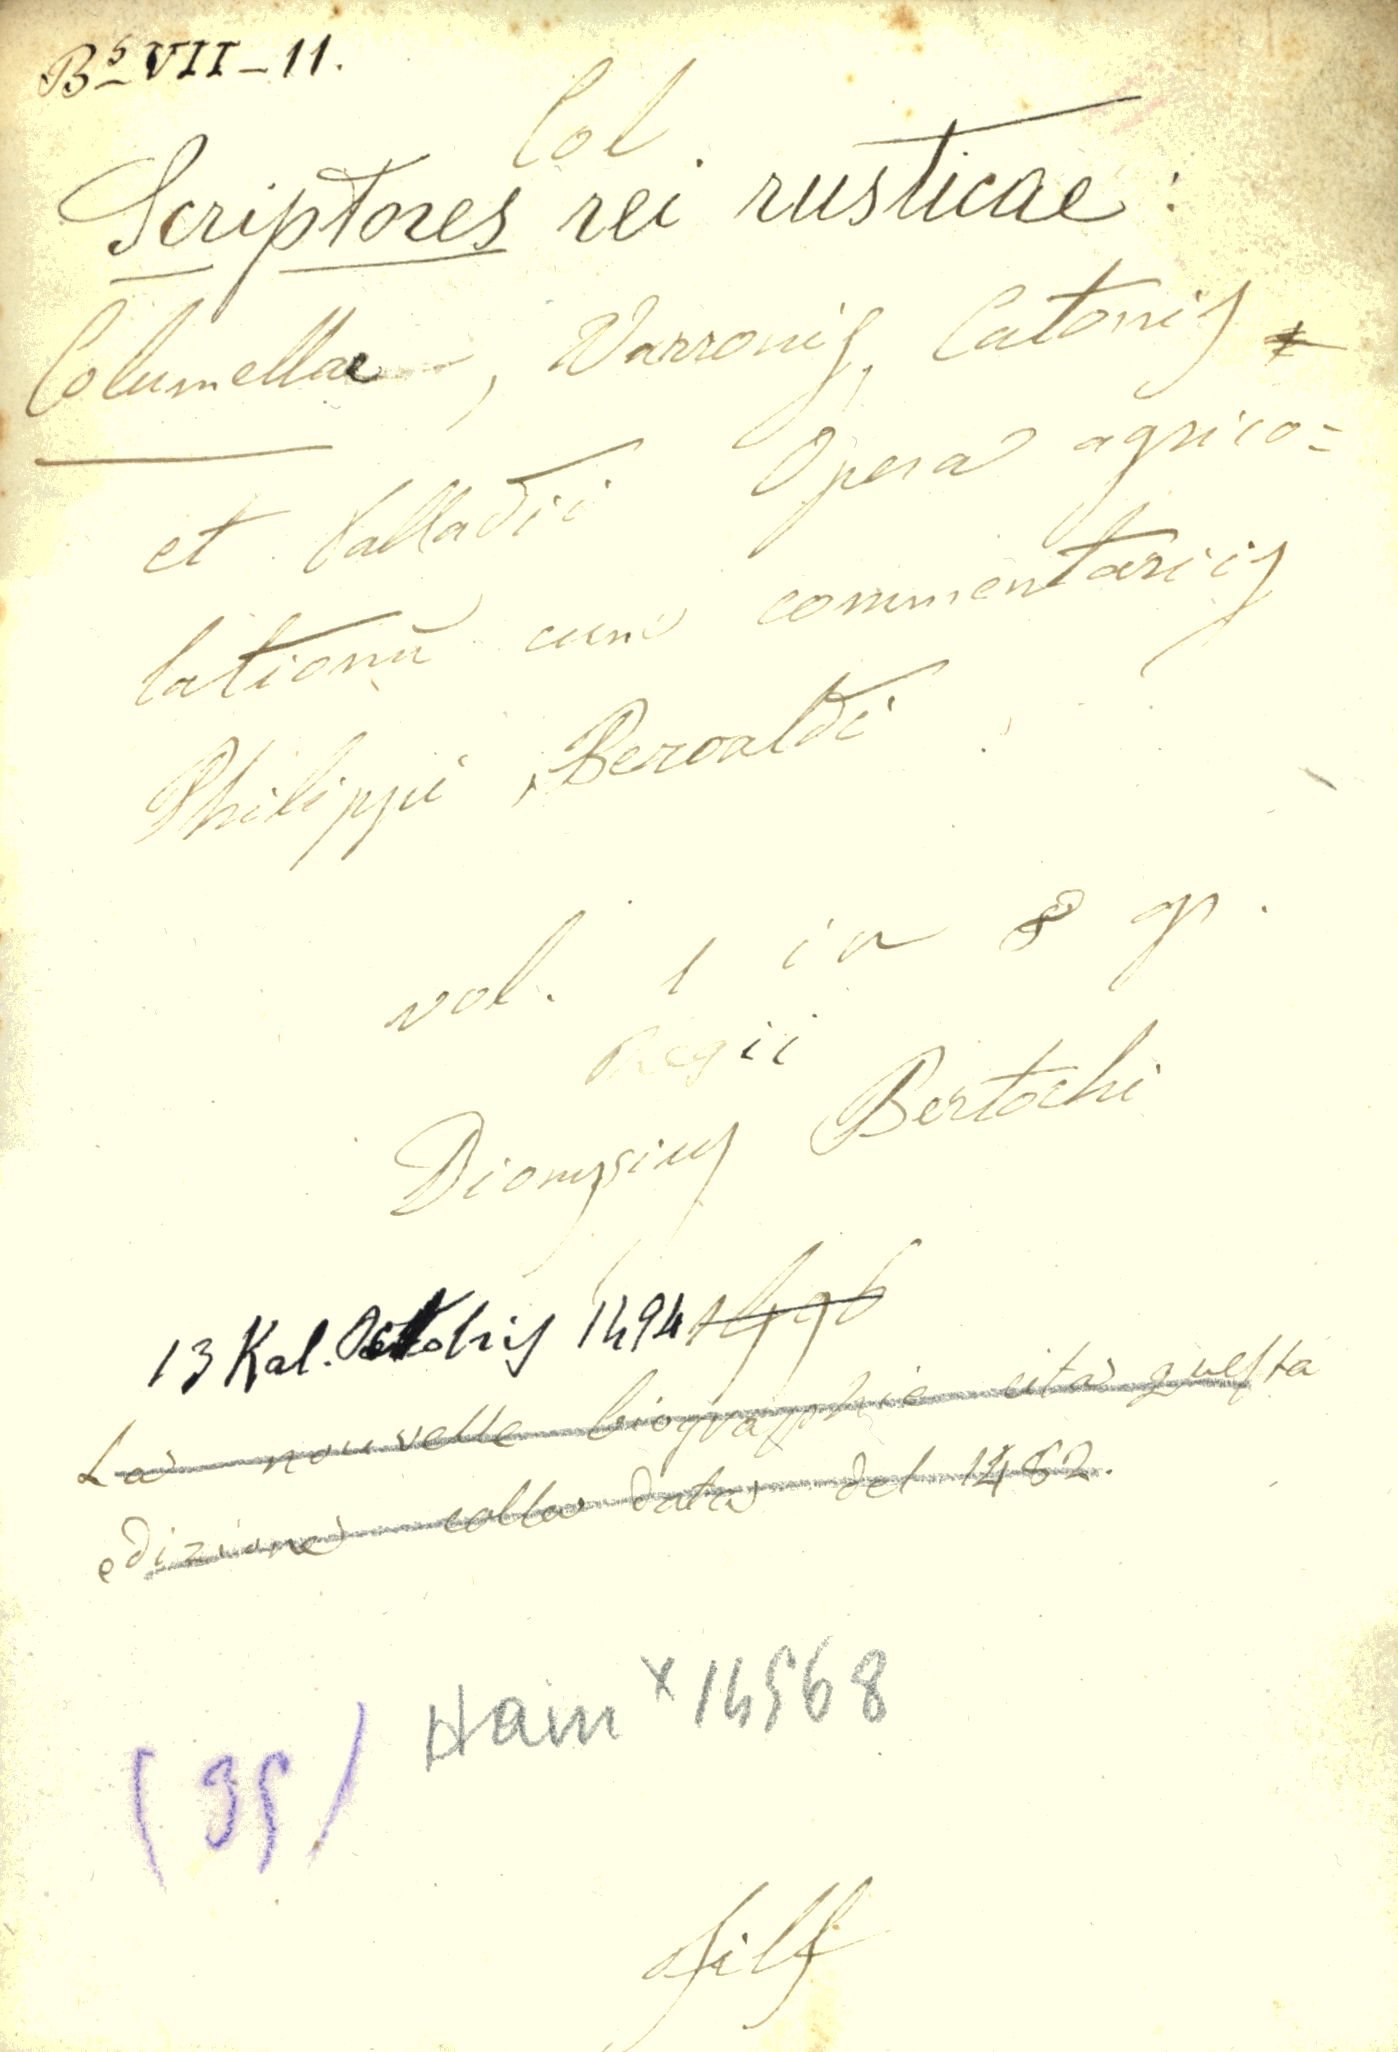 Bˢ VII – 11.
Col.
Scriptores rei rusticae:
Columellae, Varronis, Catonis
et Palladii Opera agrico=
lationū cum commentariis
Philippi Beroaldi
vol. 1 in 8 gr.
Regii
Dionysius Bertochi
13 Kal. Octobris 1494 1496
La nouvelle biographie cita questa
edizione colla data del 1482.
Hain x 14568
(35)